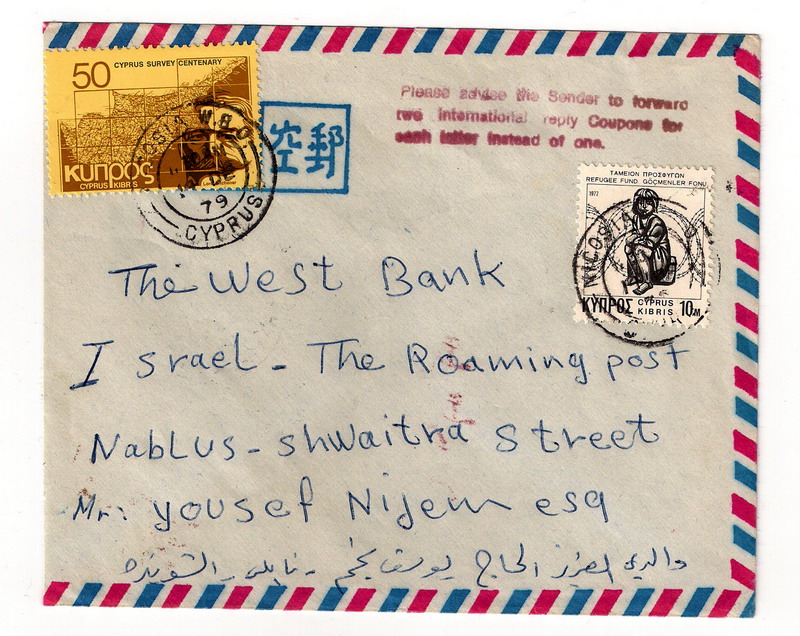 50 CYPRUS SURVEY CENTENARY
ΚυΠΡΟΣ
CYPRUS KIBRIS
79
CYPRUS
空郵
Please advise the Sender to forward
two International reply Coupons for
each letter instead of one.
ΤΑΜΕΙΟΝ ΠΡΟΣΦΥΓΩΝ
REFUGEE FUND GÖÇMENLER FONU
1977
NICOSIA
ΚΥΠΡΟΣ CYPRUS KIBRIS 10M
The West Bank
Israel - The Roaming post
Nablus - shwaitra street
Mr: yousef Nijem esq
والدي العزيز الحاج يوسف نجم - نابلس - الشويتره